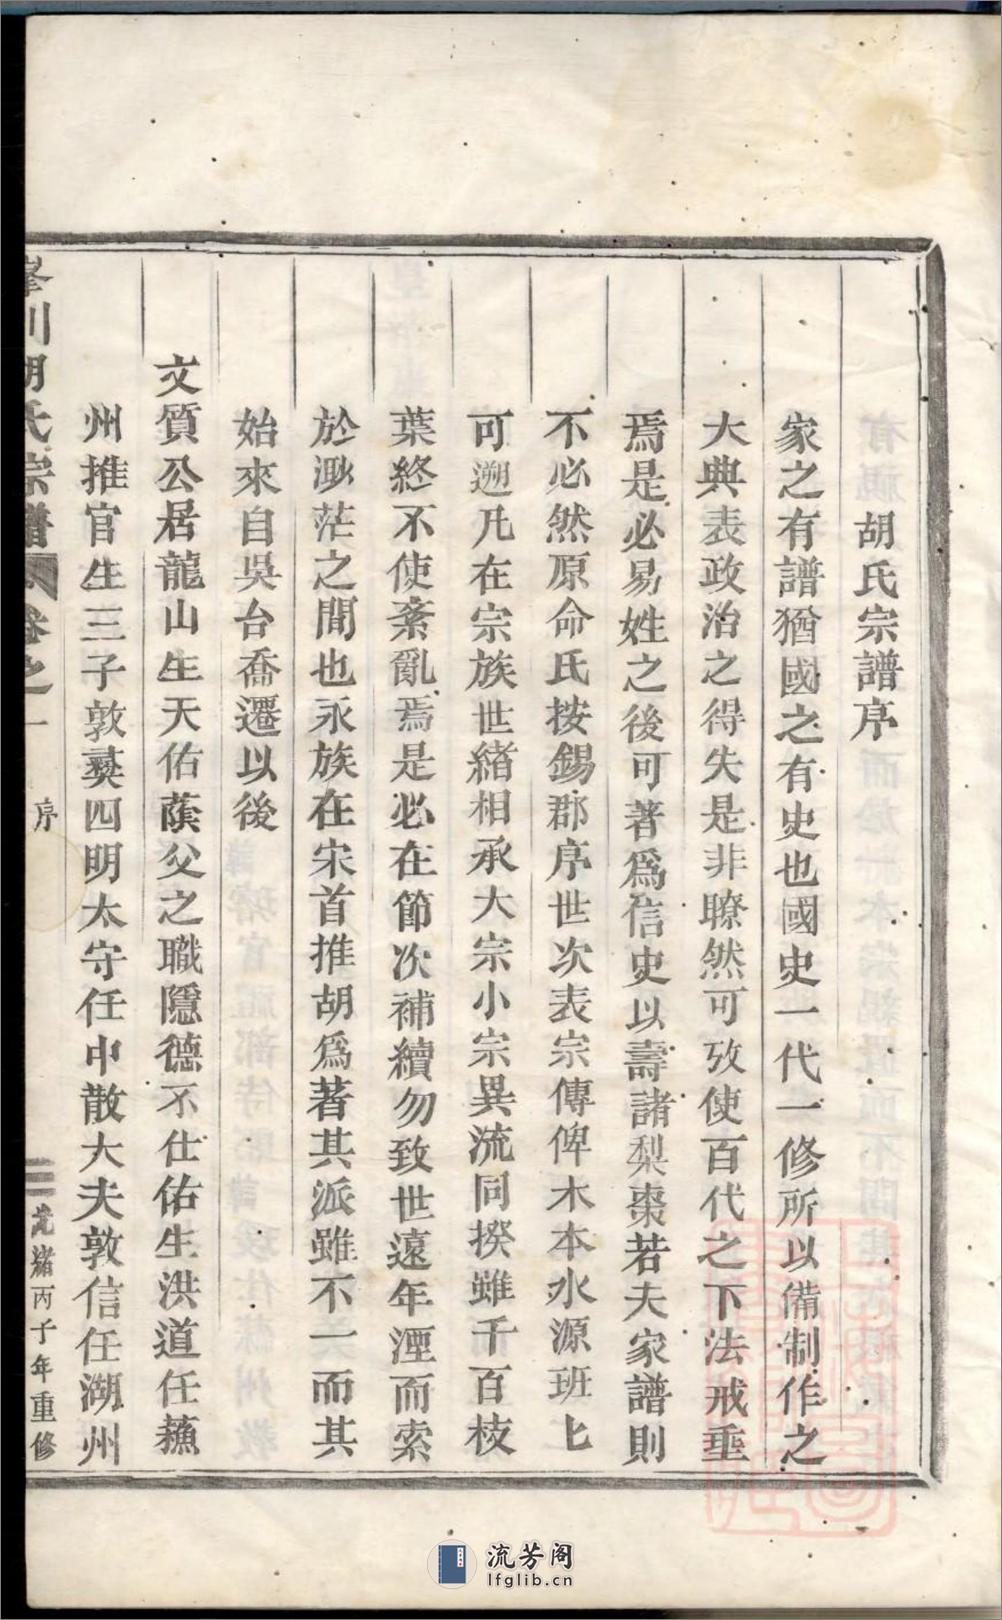 胡氏宗譜序
家之有譜猶國之有史也國史一代一修所以備制作之
大典表政治之得失是非瞭然可攷使百代之下法戒垂
焉是必易姓之後可著爲信史以壽諸梨棗若夫家譜則
不必然原命氏按錫郡序世次表宗傳俾木本水源班七
可遡凡在宗族世緒相承大宗小宗異流同揆雖千百枝
葉終不使紊亂焉是必在節次補續勿致世遠年湮而索
於渺茫之間也永族在宋首推胡爲著其派雖不一而其
始來自吳台喬遷以後
文質公居龍山生天佑蔭父之職隱德不仕佑生洪道任蘓
州推官生三子敦彝四明太守任中散大夫敦信任湖州
峯川胡氏宗譜 卷之一 序 一 光緒丙子年重修
流芳阁
lfglib.cn